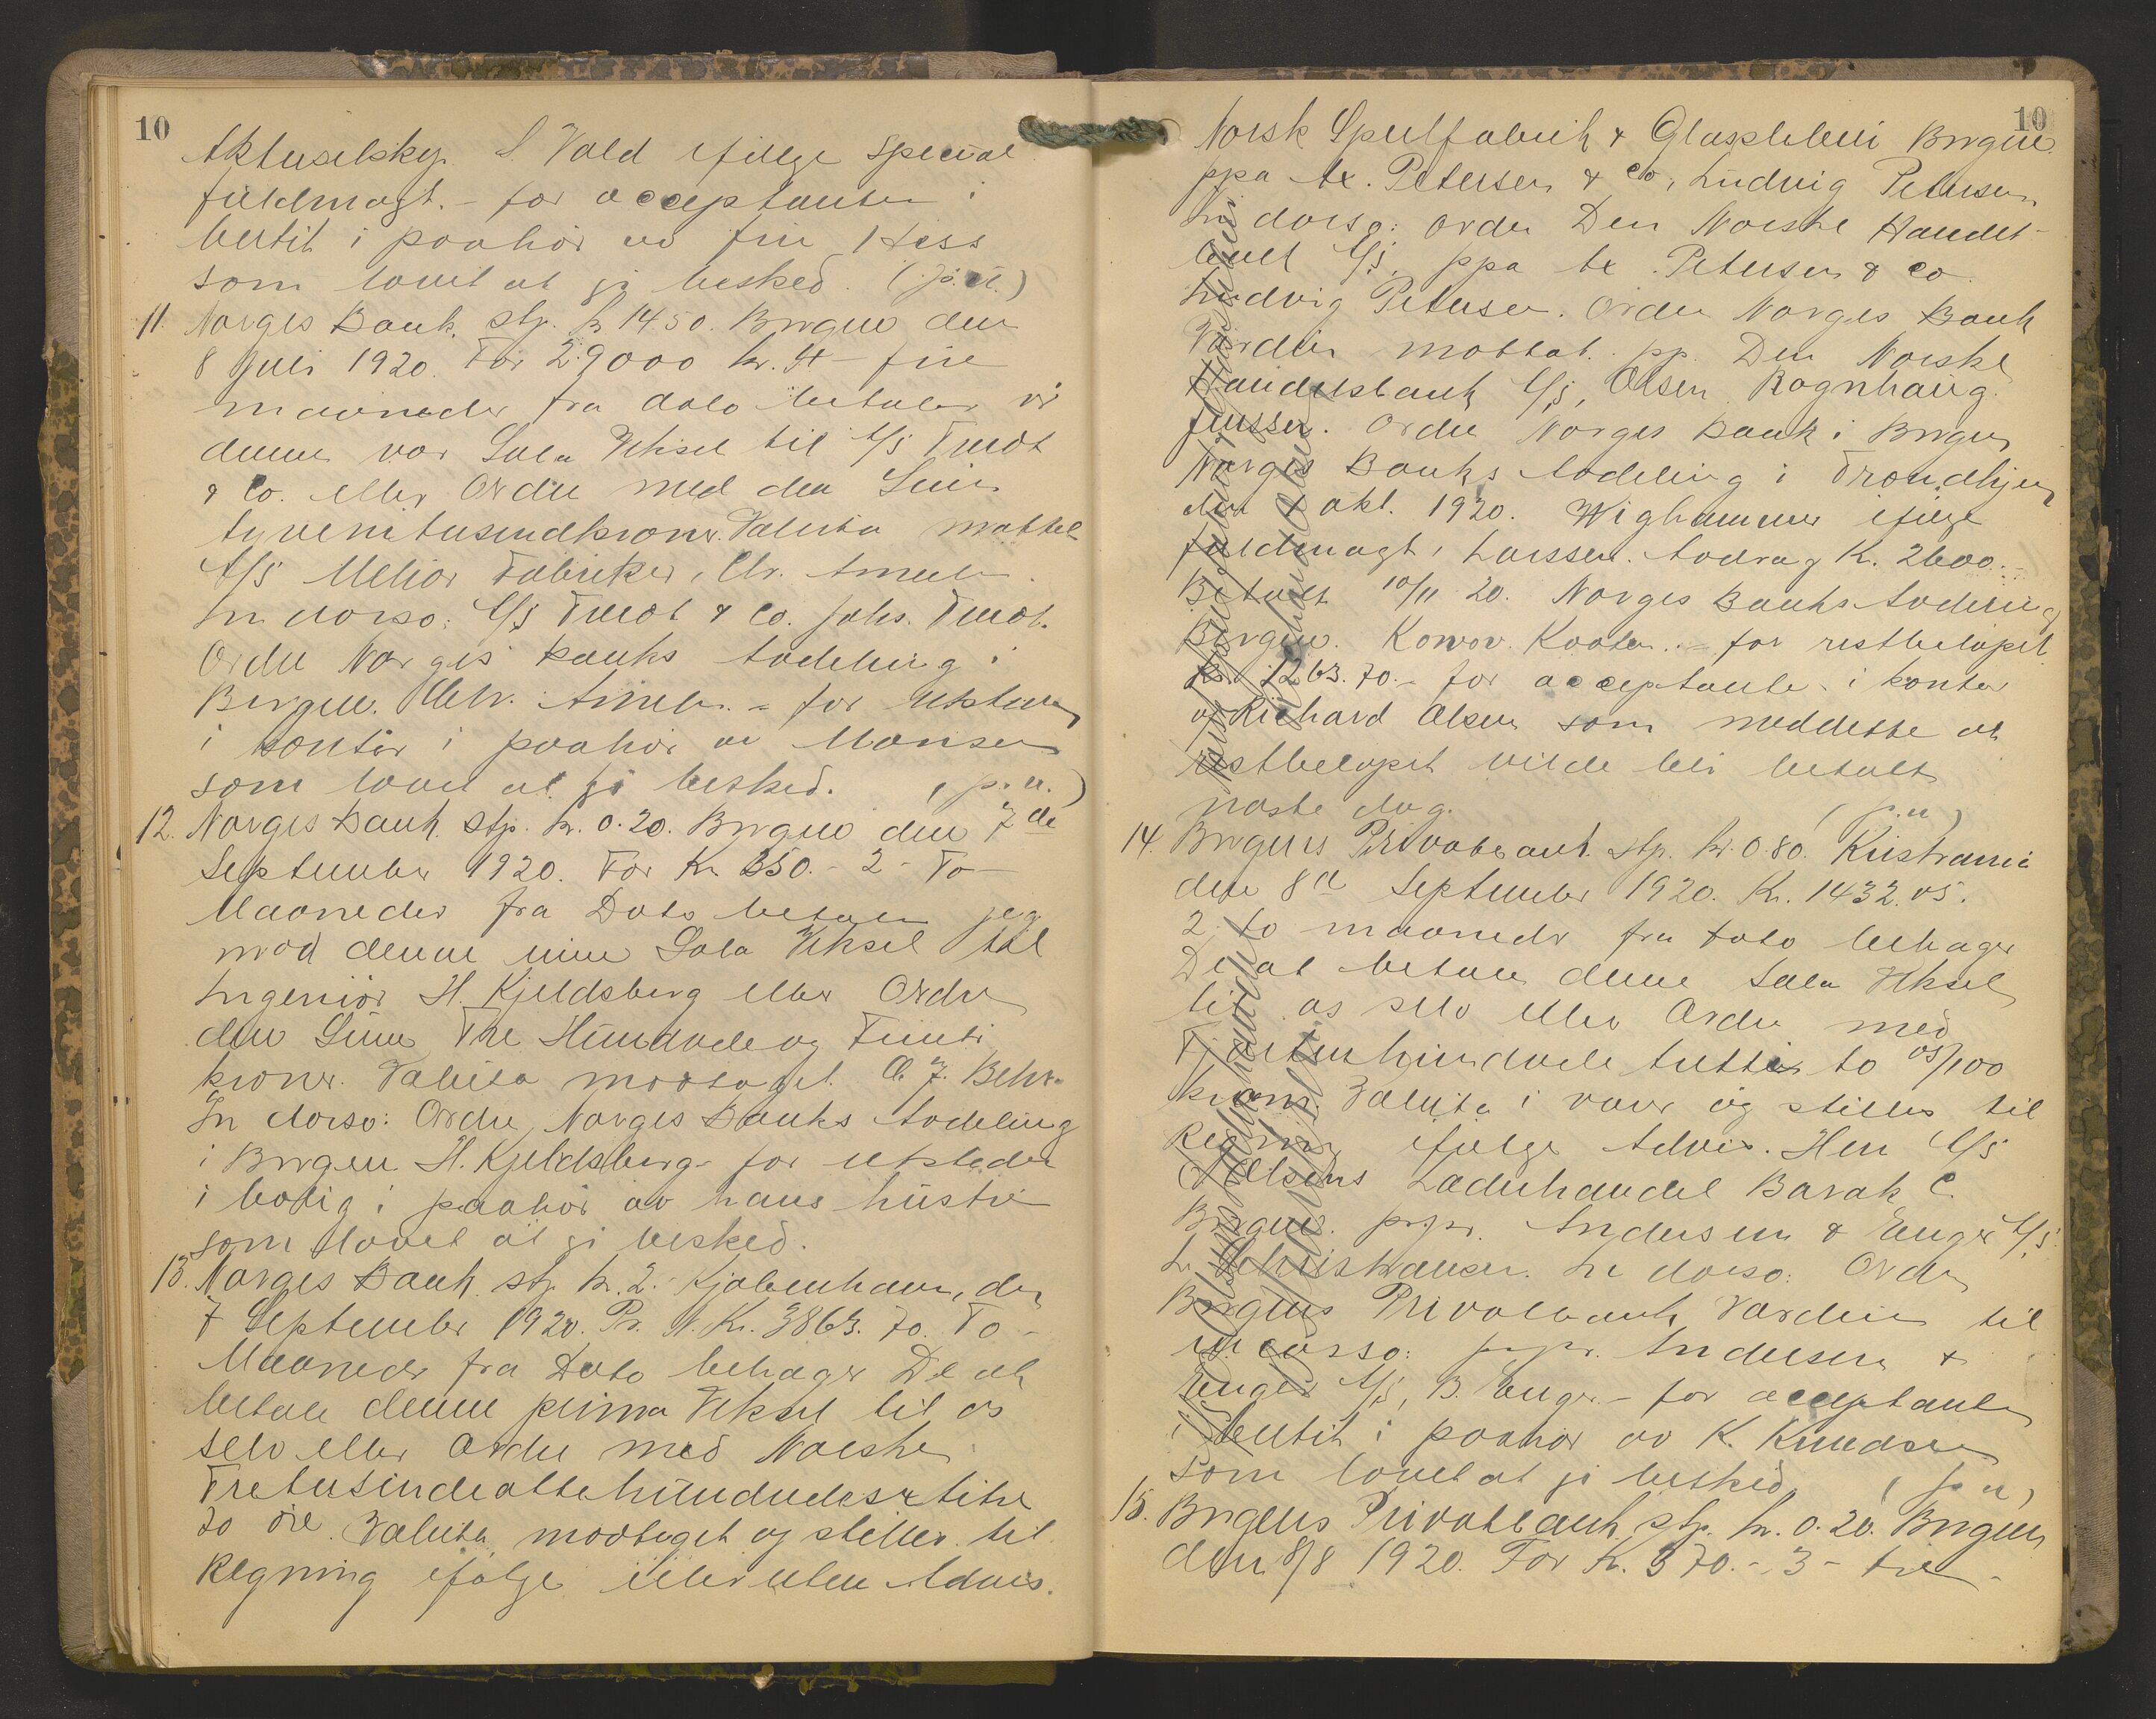 10
Aktieselskg. S. Vold ifølge special
fuldmagt. - for acceptanten i
butik i paahør av frú Hess
som lovet at gi besked. (p.u.)
11. Norges Bank. stp. kr 14.50. Bergen den
8 Juli 1920. For 29000 kr. 4 - fire
maaneder fra dato betaler vi
denne vor Sola Veksel til A/S Tvedt
& Co. eller Ordre med den Súm
tyvenitusendkroner. Valuta mottat
A/S Melior Fabriker, Chr. Ameln.
In dorso: A/S Tvedt & Co. Johs. Tvedt.
Ordre Norges Banks Avdeling i
Bergen. Chr. Ameln. - for utstederen
i kontor i paahør av Monsen
som lovet at gi besked. (p.u.)
12. Norges Bank. stp. kr. 0.20. Bergen den 7de
September 1920. For Kr 350.- 2 - To -
Maaneder fra Dato betaler jeg
mod denne min Sola Veksel til
Ingeniør H. Kjeldsberg eller Ordre
den Súm Tre Húndrede og Femti
kroner. Valuta mottaget. C. F. Behr.
In dorso: Ordre Norges Banks Avdeling
i Bergen H. Kjeldsberg - for utsteder
i bolig i paahør av hans hústrú
som lovet at gi besked.
13. Norges Bank. stp. kr. 2. Kjøbenhavn, den
7 September 1920. Pr. N. Kr. 3863.70. To -
Maaneder fra Dato behager De at
betale denne prima Veksel til os
selv eller Ordre med Norske
Tretusindeottehúndredesextitre
70 øre. Valuta modtaget og stilles til
Regning ifølge eller uden Advis.
10
Norsk Speilfabrik & Glassliberi Bergen.
ppa Ax. Petersen & Co, Lúdvig Petersen
In dorso: Ordre Den Norske Handels-
bank A/S, ppa Ax. Petersen & Co
Lúdvig Petersen. Ordre Norges Bank
Værdien mottat. pp. Den Norske
Handelsbank A/S, Olsen Rognhaug.
Jenssen. Ordre Norges Bank i Bergen
Norges Banks Avdeling i Trondhjem
den 1 okt. 1920. Wighammer ifølge
fuldmagt, Larssen. Avdrag K. 2600.-
Betalt 10/11 20. Norges Banks Avdeling
Bergen. Konow. Kooter. - for restbeløpet
kr. 1263.70.- for acceptanten i kontor
av Richard Olsen som meddelte at
restbeløpet vilde bli betalt
næste dag. (p.u)
14. Bergens Privatbank. stp. kr. 0.80. Kristiania
den 8de September 1920. Kr. 1432.05.
2 to maaneder fra dato behager
De at betale denne Sola Veksel
til os selv eller Ordre med
Fjortenhúndrede tretti to 05/100
kroner. Valuta i varer og stilles til
Regning ifølge Advis. Herr A/S
Olsens Læderhandel Barak C.
Bergen. pr.pr. Andersen & Enger A/S
L. Christiansen. In dorso: Ordre
Bergens Privatbank Værdien til
incasso: pr.pr. Andersen &
Enger A/S, B. Enger - for acceptanten
i butik i paahør av K. Knúdsen
som lovet at gi besked. (p.u)
15. Bergens Privatbank stp. kr. 0.20. Bergen
den 8/8 1920. For Kr. 370.- 3 - tre -